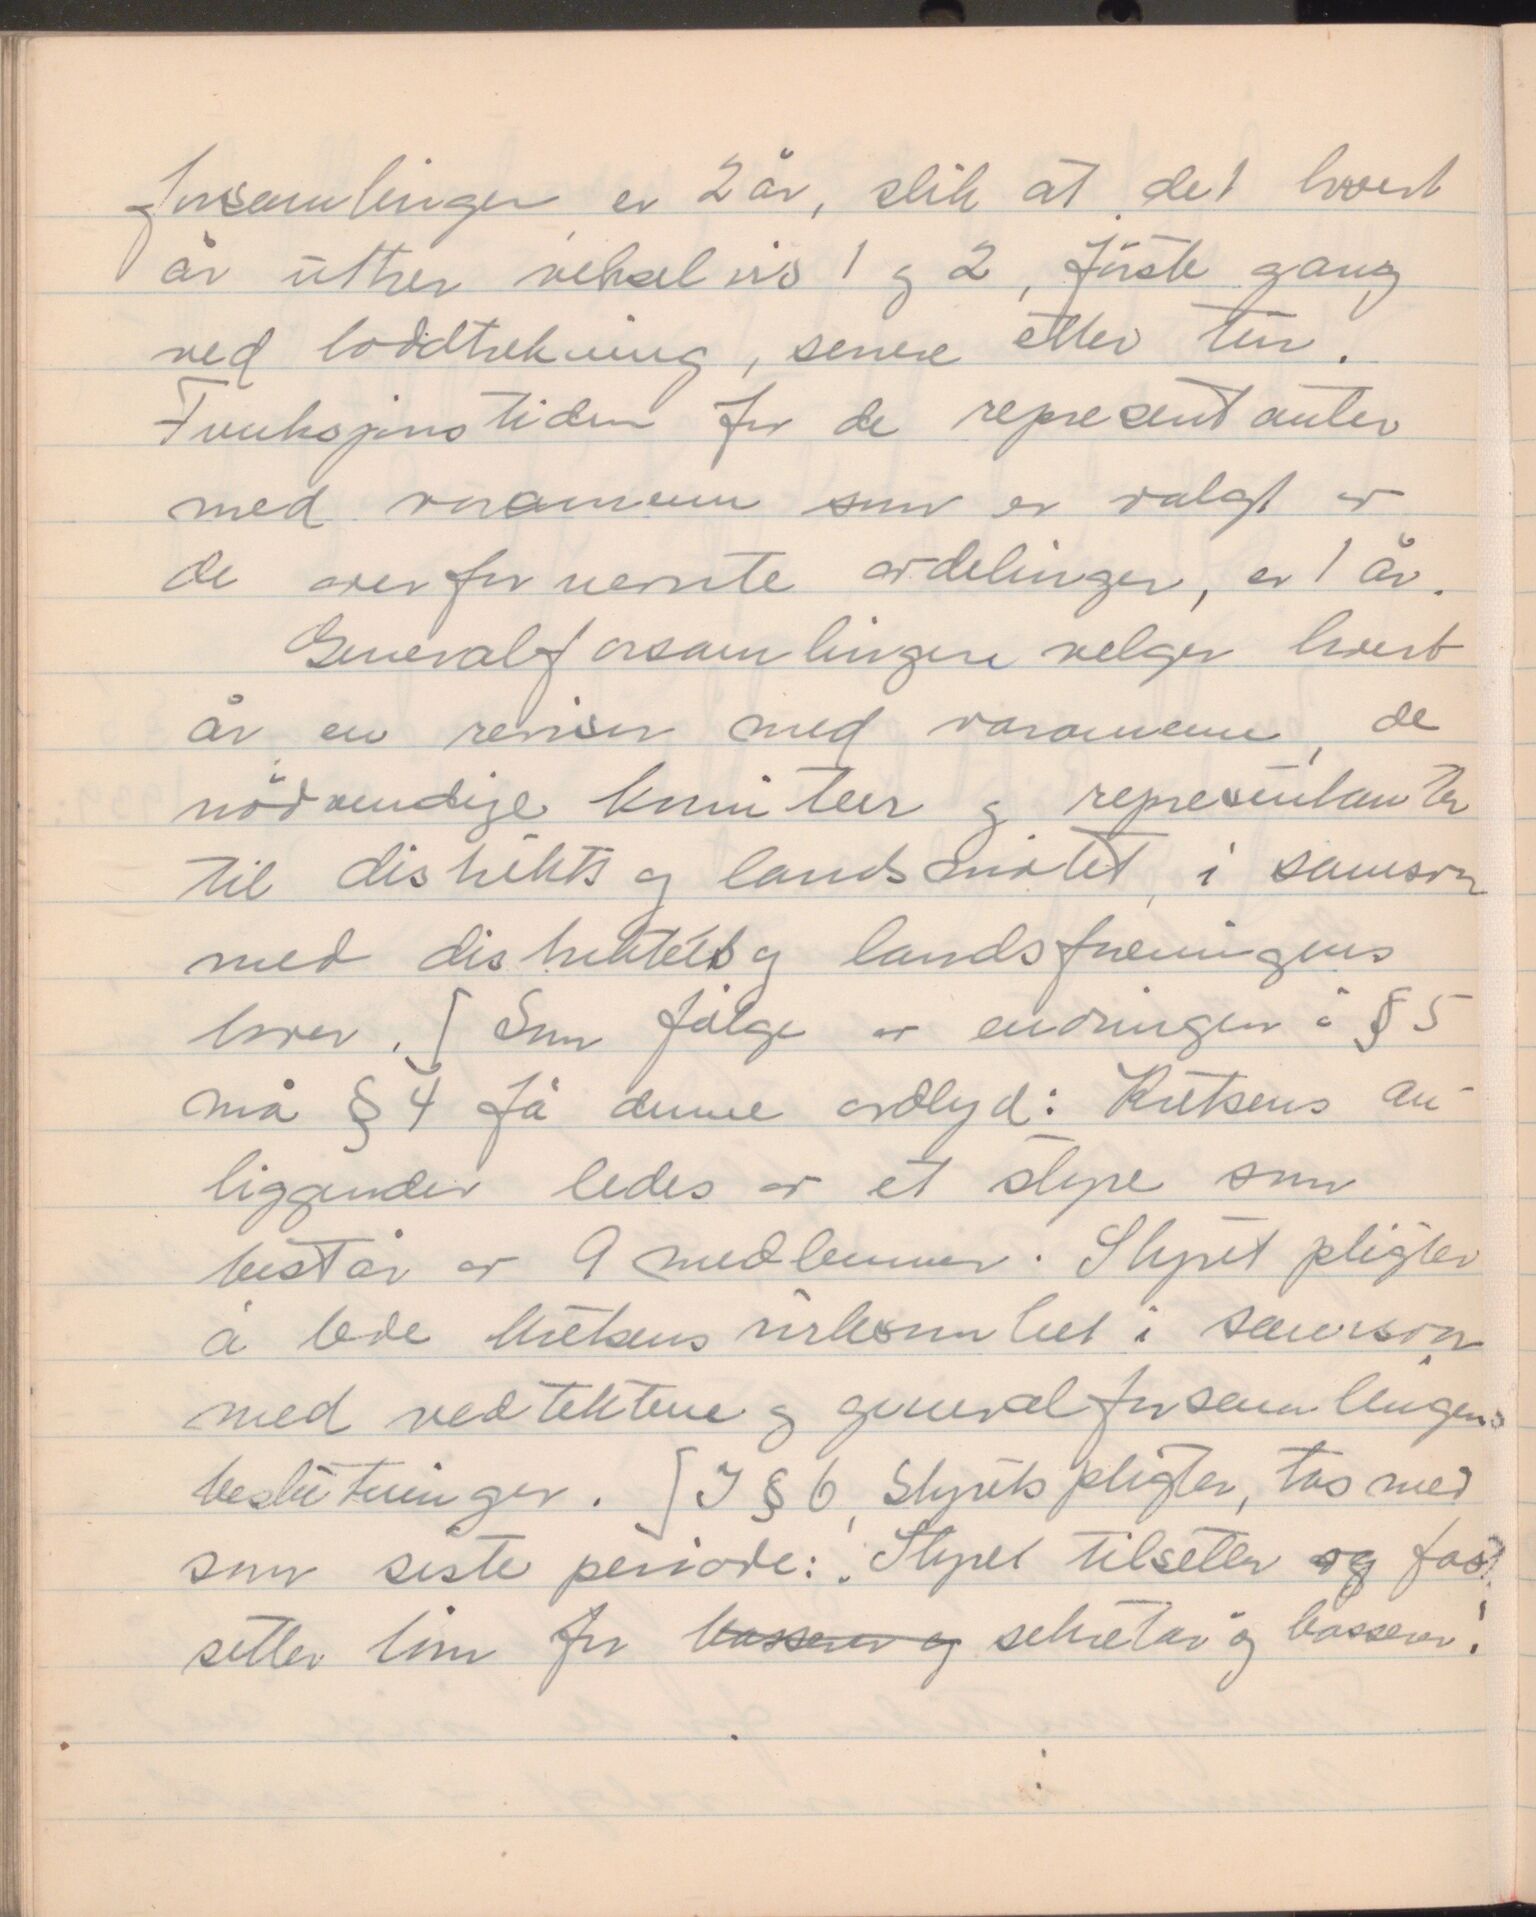 forsamlingen er 2 år, slik at det hvert
år uttrer vekselvis 1 og 2, første gang
ved loddtrekning, senere etter tur.
Funksjonstiden for de representanter
med varamenn som er valgt av
de overfor nevnte avdelinger, er 1 år.
Generalforsamlingen velger hvert
år en revisor med varamenn, de
nödvendige komiteer og representanter
til distrikts og landsmötet, i samsvar
med distriktets og landsforeningens
lover. [ Som fölge av endringen i § 5
må § 4 få denne ordlyd: Kretsens an-
liggender ledes av et styre som
består av 9 medlemmer. Styret pligter
å lede kretsens virksomhet i samsvar
med vedtektene og generalforsamlingens
beslutninger. [ I § 6, Styrets pligter, tas med
som siste periode: "Styret tilsetter og fast-
setter lönn for kasserer og sekretær og kasserer."